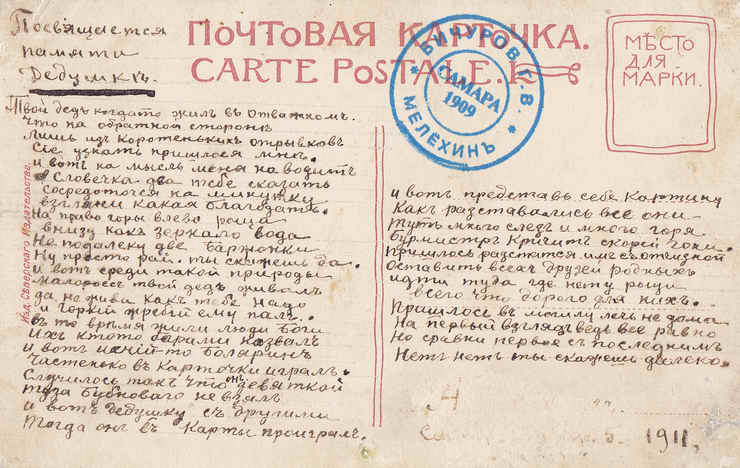 Посвящается
памяти
Дедушкѣ.
ПОЧТОВАЯ КАРТОЧКА.
CARTE POSTALE.
БИЧУРОВ Г.В.
САМАРА
1909
МЕЛЁХИНЪ
МѢСТО
ДЛЯ
МАРКИ.
Твой дедъ когдато жилъ въ Отважномъ.
Что на обратной сторонѣ
Лишь изъ коротенькихъ отрывковъ
Все узнать пришлося мнѣ.
И вотъ на мысль меня наводитъ
Словечка два тебе сказать
Сосредоточся на минутку
взгляни какая благодать.
На право горы влево роща
внизу какъ зеркало вода
Не подалеку две баржонки
Ну просто рай. ты скажешь да.
и вотъ среди такой природы
малороссъ твой дедъ живалъ
да не жива какъ тебе надо
и горкий жребий ему палъ.
въ то время жили люди Боги
Ихъ ктото барами назвалъ
и вотъ какой-то Бояринъ
Частенько въ карточки игралъ.
Случилось такъ что онъ девяткой
туза бубноваго не взялъ
и вотъ дедушку съ другими
тогда онъ въ карты проигралъ.
Изд. Сѣверскаго Издательства.
и вотъ представь себе картину
какъ разставались все они
тутъ много слезъ и много горя
бурмистръ кричитъ скорей гони.
Пришлось разстатся имъ съ отчизной
оставить всехъ друзей родныхъ
идти туда где нету рощи
всего что дорого для нихъ.
Пришлось въ могилу лечь не дома
На первый взглядъ ведь все равно
Но сравни первое съ последнимъ
Нетъ нетъ ты скажешь далеко.
1911.